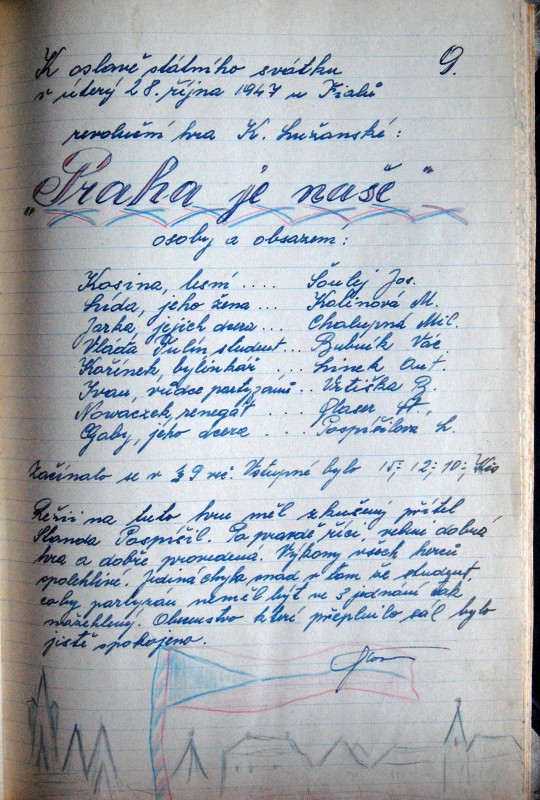 9.
K oslavě státního svátku
v úterý 28. října 1947 u Fialů
revoluční hra K. Lužanské:
"Praha je naše"
osoby a obsazení:
Kosina, lesní .... Šoulej Jos.
Lída, jeho žena ... Kalinová M.
Jarka, jejich dcera ... Chalupná Mil.
Vláďa Tulín student ... Bubník Vác.
Kořínek, bylinkář .. Linek Ant.
Ivan, vůdce partyzánů .. Vrtiška B.
Nowaczek, renegát .... Glaser St.,
Gaby, jeho dcera ... Pospíšilova L.
Začínalo se v 9 več. Vstupné bylo 15; 12; 10; Kčs
Režii na tuto hru měl zkušený přítel
Standa Pospíšil. Po pravdě říci, velmi dobrá
hra a dobře provedená. Výkony všech herců
spolehlivé. Jediná chyba snad v tom že student,
coby partyzán neměl být ve 3 jednání tak
nažehlený. Obecenstvo které přeplnilo sál bylo
jistě spokojeno.